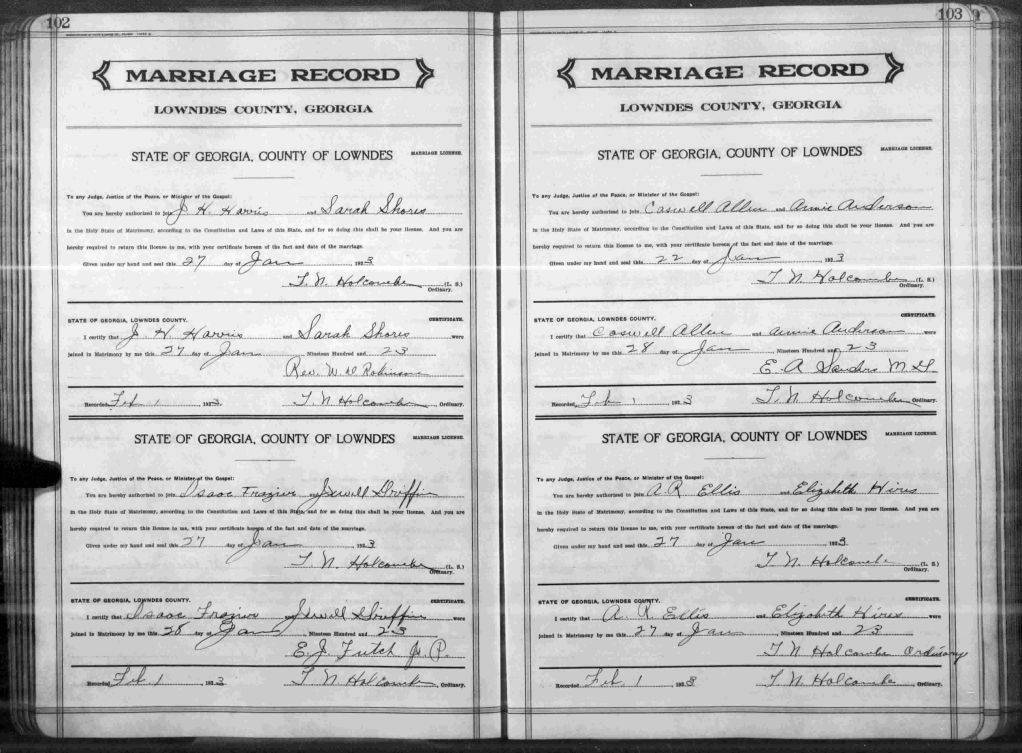 102
MARRIAGE RECORD
LOWNDES COUNTY, GEORGIA
STATE OF GEORGIA, COUNTY OF LOWNDES
MARRIAGE LICENSE.
To any Judge, Justice of the Peace, or Minister of the Gospel:
You are hereby authorized to join J. H. Harris and Sarah Shores
in the Holy State of Matrimony, according to the Constitution and Laws of this State, and for so doing this shall be your license. And you are
hereby required to return this license to me, with your certificate hereon of the fact and date of the marriage.
Given under my hand and seal this 27 day of Jan 1923
T. N. Holcombe (L. S.)
Ordinary.
STATE OF GEORGIA, LOWNDES COUNTY.
CERTIFICATE.
I certify that J. H. Harris and Sarah Shores were
joined in Matrimony by me this 27 day of Jan Nineteen Hundred and 23
Rev. W. D. Robinson
Recorded Feb 1 1923 T. N. Holcombe, Ordinary.
STATE OF GEORGIA, COUNTY OF LOWNDES
MARRIAGE LICENSE.
To any Judge, Justice of the Peace, or Minister of the Gospel:
You are hereby authorized to join Isaac Frazier and Jewell Griffin
in the Holy State of Matrimony, according to the Constitution and Laws of this State, and for so doing this shall be your license. And you are
hereby required to return this license to me, with your certificate hereon of the fact and date of the marriage.
Given under my hand and seal this 27 day of Jan 1923
T. N. Holcombe (L. S.)
Ordinary.
STATE OF GEORGIA, LOWNDES COUNTY.
CERTIFICATE.
I certify that Isaac Frazier Jewell Griffin were
joined in Matrimony by me this 28 day of Jan, Nineteen Hundred and 23
E. J. Futch J. P.
Recorded Feb 1 1923 T. N. Holcombe, Ordinary.
103
MARRIAGE RECORD
LOWNDES COUNTY, GEORGIA
STATE OF GEORGIA, COUNTY OF LOWNDES
MARRIAGE LICENSE.
To any Judge, Justice of the Peace, or Minister of the Gospel:
You are hereby authorized to join Coswell Allen and Annie Anderson
in the Holy State of Matrimony, according to the Constitution and Laws of this State, and for so doing this shall be your license. And you are
hereby required to return this license to me, with your certificate hereon of the fact and date of the marriage.
Given under my hand and seal this 22 day of Jan 1923
T. N. Holcombe (L. S.)
Ordinary.
STATE OF GEORGIA, LOWNDES COUNTY.
CERTIFICATE.
I certify that Coswell Allen and Annie Anderson were
joined in Matrimony by me this 28 day of Jan, Nineteen Hundred and 23
E. A. Sanders M. G.
Recorded Feb 1 1923 T. N. Holcombe, Ordinary.
STATE OF GEORGIA, COUNTY OF LOWNDES
MARRIAGE LICENSE.
To any Judge, Justice of the Peace, or Minister of the Gospel:
You are hereby authorized to join A. R. Ellis and Elizabeth Hires
in the Holy State of Matrimony, according to the Constitution and Laws of this State, and for so doing this shall be your license. And you are
hereby required to return this license to me, with your certificate hereon of the fact and date of the marriage.
Given under my hand and seal this 27 day of Jan 1923
T. N. Holcombe (L. S.)
Ordinary.
STATE OF GEORGIA, LOWNDES COUNTY.
CERTIFICATE.
I certify that A. R. Ellis and Elizabeth Hires were
joined in Matrimony by me this 27 day of Jan, Nineteen Hundred and 23
T. N. Holcombe Ordinary
Recorded Feb. 1 1923 T. N. Holcombe, Ordinary.